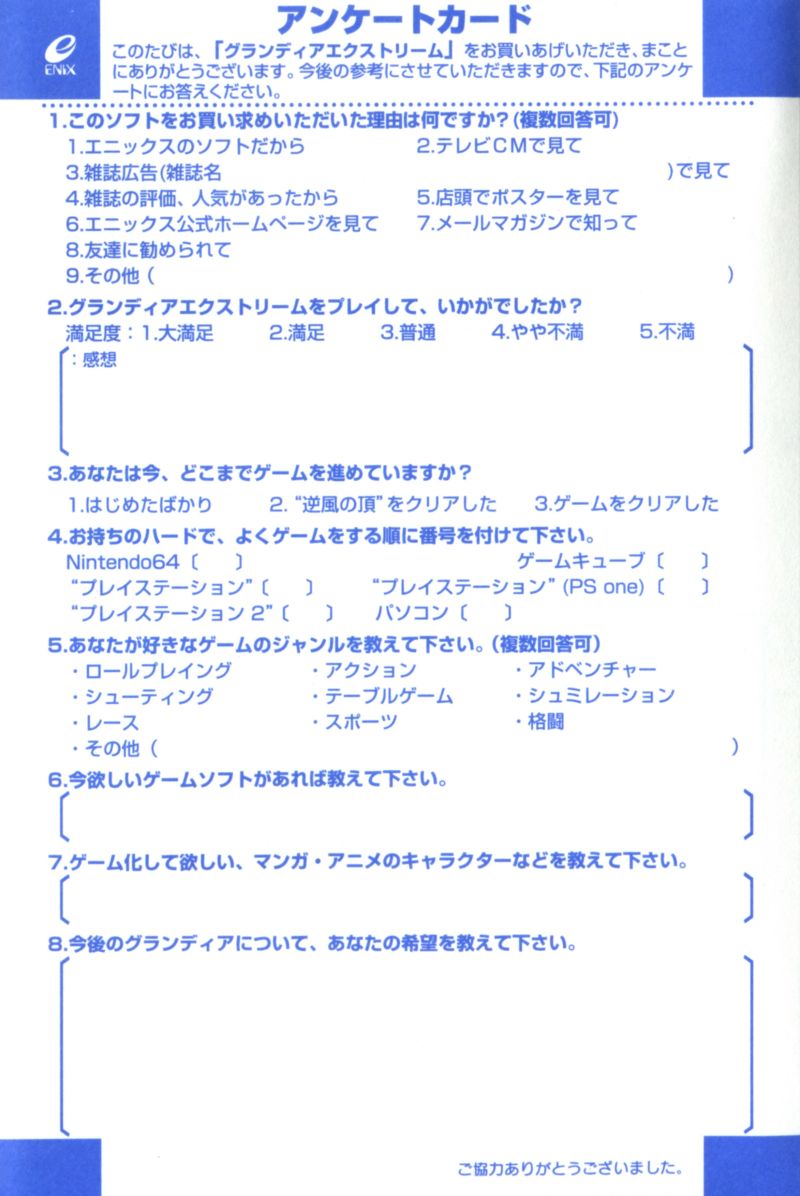 アンケートカード
ENIX
このたびは、「グランディアエクストリーム」をお買いあげいただき、まこと
にありがとうございます。今後の参考にさせていただきますので、下記のアンケ
ートにお答えください。
1.このソフトをお買い求めいただいた理由は何ですか?(複数回答可)
1.エニックスのソフトだから 2.テレビCMで見て
3.雑誌広告(雑誌名 )で見て
4.雑誌の評価、人気があったから 5.店頭でポスターを見て
6.エニックス公式ホームページを見て 7.メールマガジンで知って
8.友達に勧められて
9.その他( )
2.グランディアエクストリームをプレイして、いかがでしたか?
満足度:1.大満足 2.満足 3.普通 4.やや不満 5.不満
:感想
3.あなたは今、どこまでゲームを進めていますか?
1.はじめたばかり 2.“逆風の頂”をクリアした 3.ゲームをクリアした
4.お持ちのハードで、よくゲームをする順に番号を付けて下さい。
Nintendo64〔 〕 ゲームキューブ〔 〕
“プレイステーション”〔 〕 “プレイステーション”(PS one)〔 〕
“プレイステーション 2”〔 〕 パソコン〔 〕
5.あなたが好きなゲームのジャンルを教えて下さい。(複数回答可)
・ロールプレイング ・アクション ・アドベンチャー
・シューティング ・テーブルゲーム ・シュミレーション
・レース ・スポーツ ・格闘
・その他( )
6.今欲しいゲームソフトがあれば教えて下さい。
7.ゲーム化して欲しい、マンガ・アニメのキャラクターなどを教えて下さい。
8.今後のグランディアについて、あなたの希望を教えて下さい。
ご協力ありがとうございました。